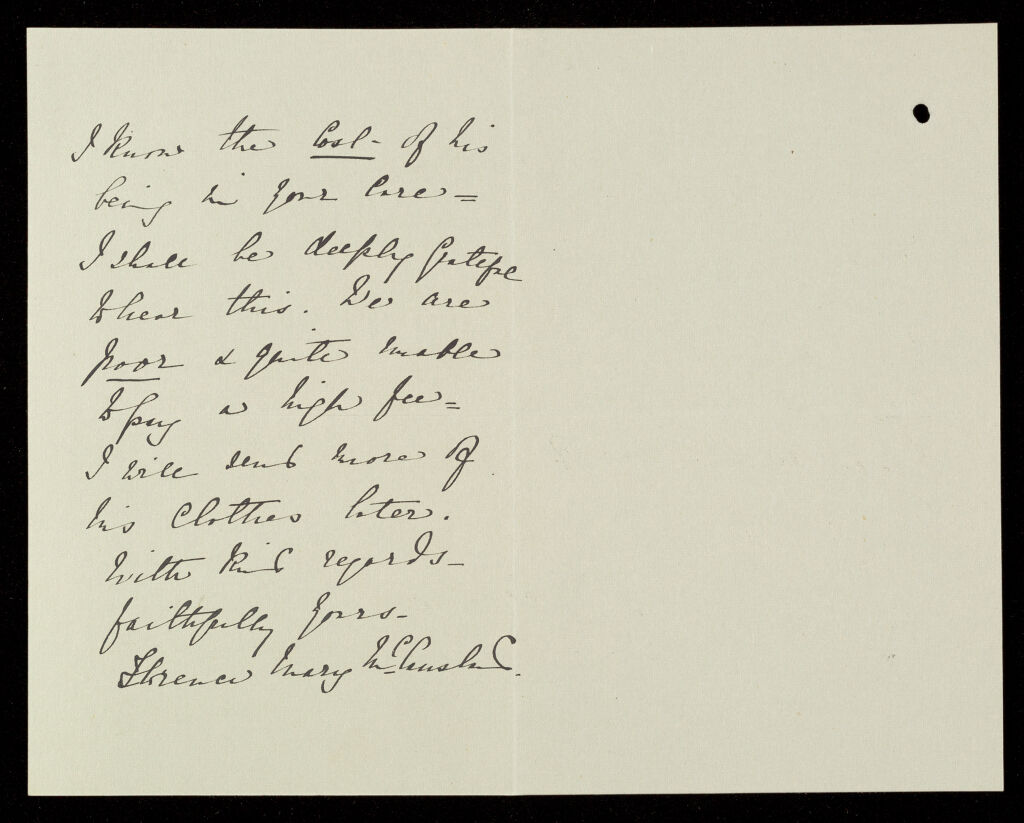 I know the Cost - of his
being in your Care =
I shall be deeply Grateful
to hear this. We are
poor & quite unable
to pay a high fee =
I will send more of
his Clothes later.
With Kind regards -
faithfully yours -
Florence Mary McCausland.